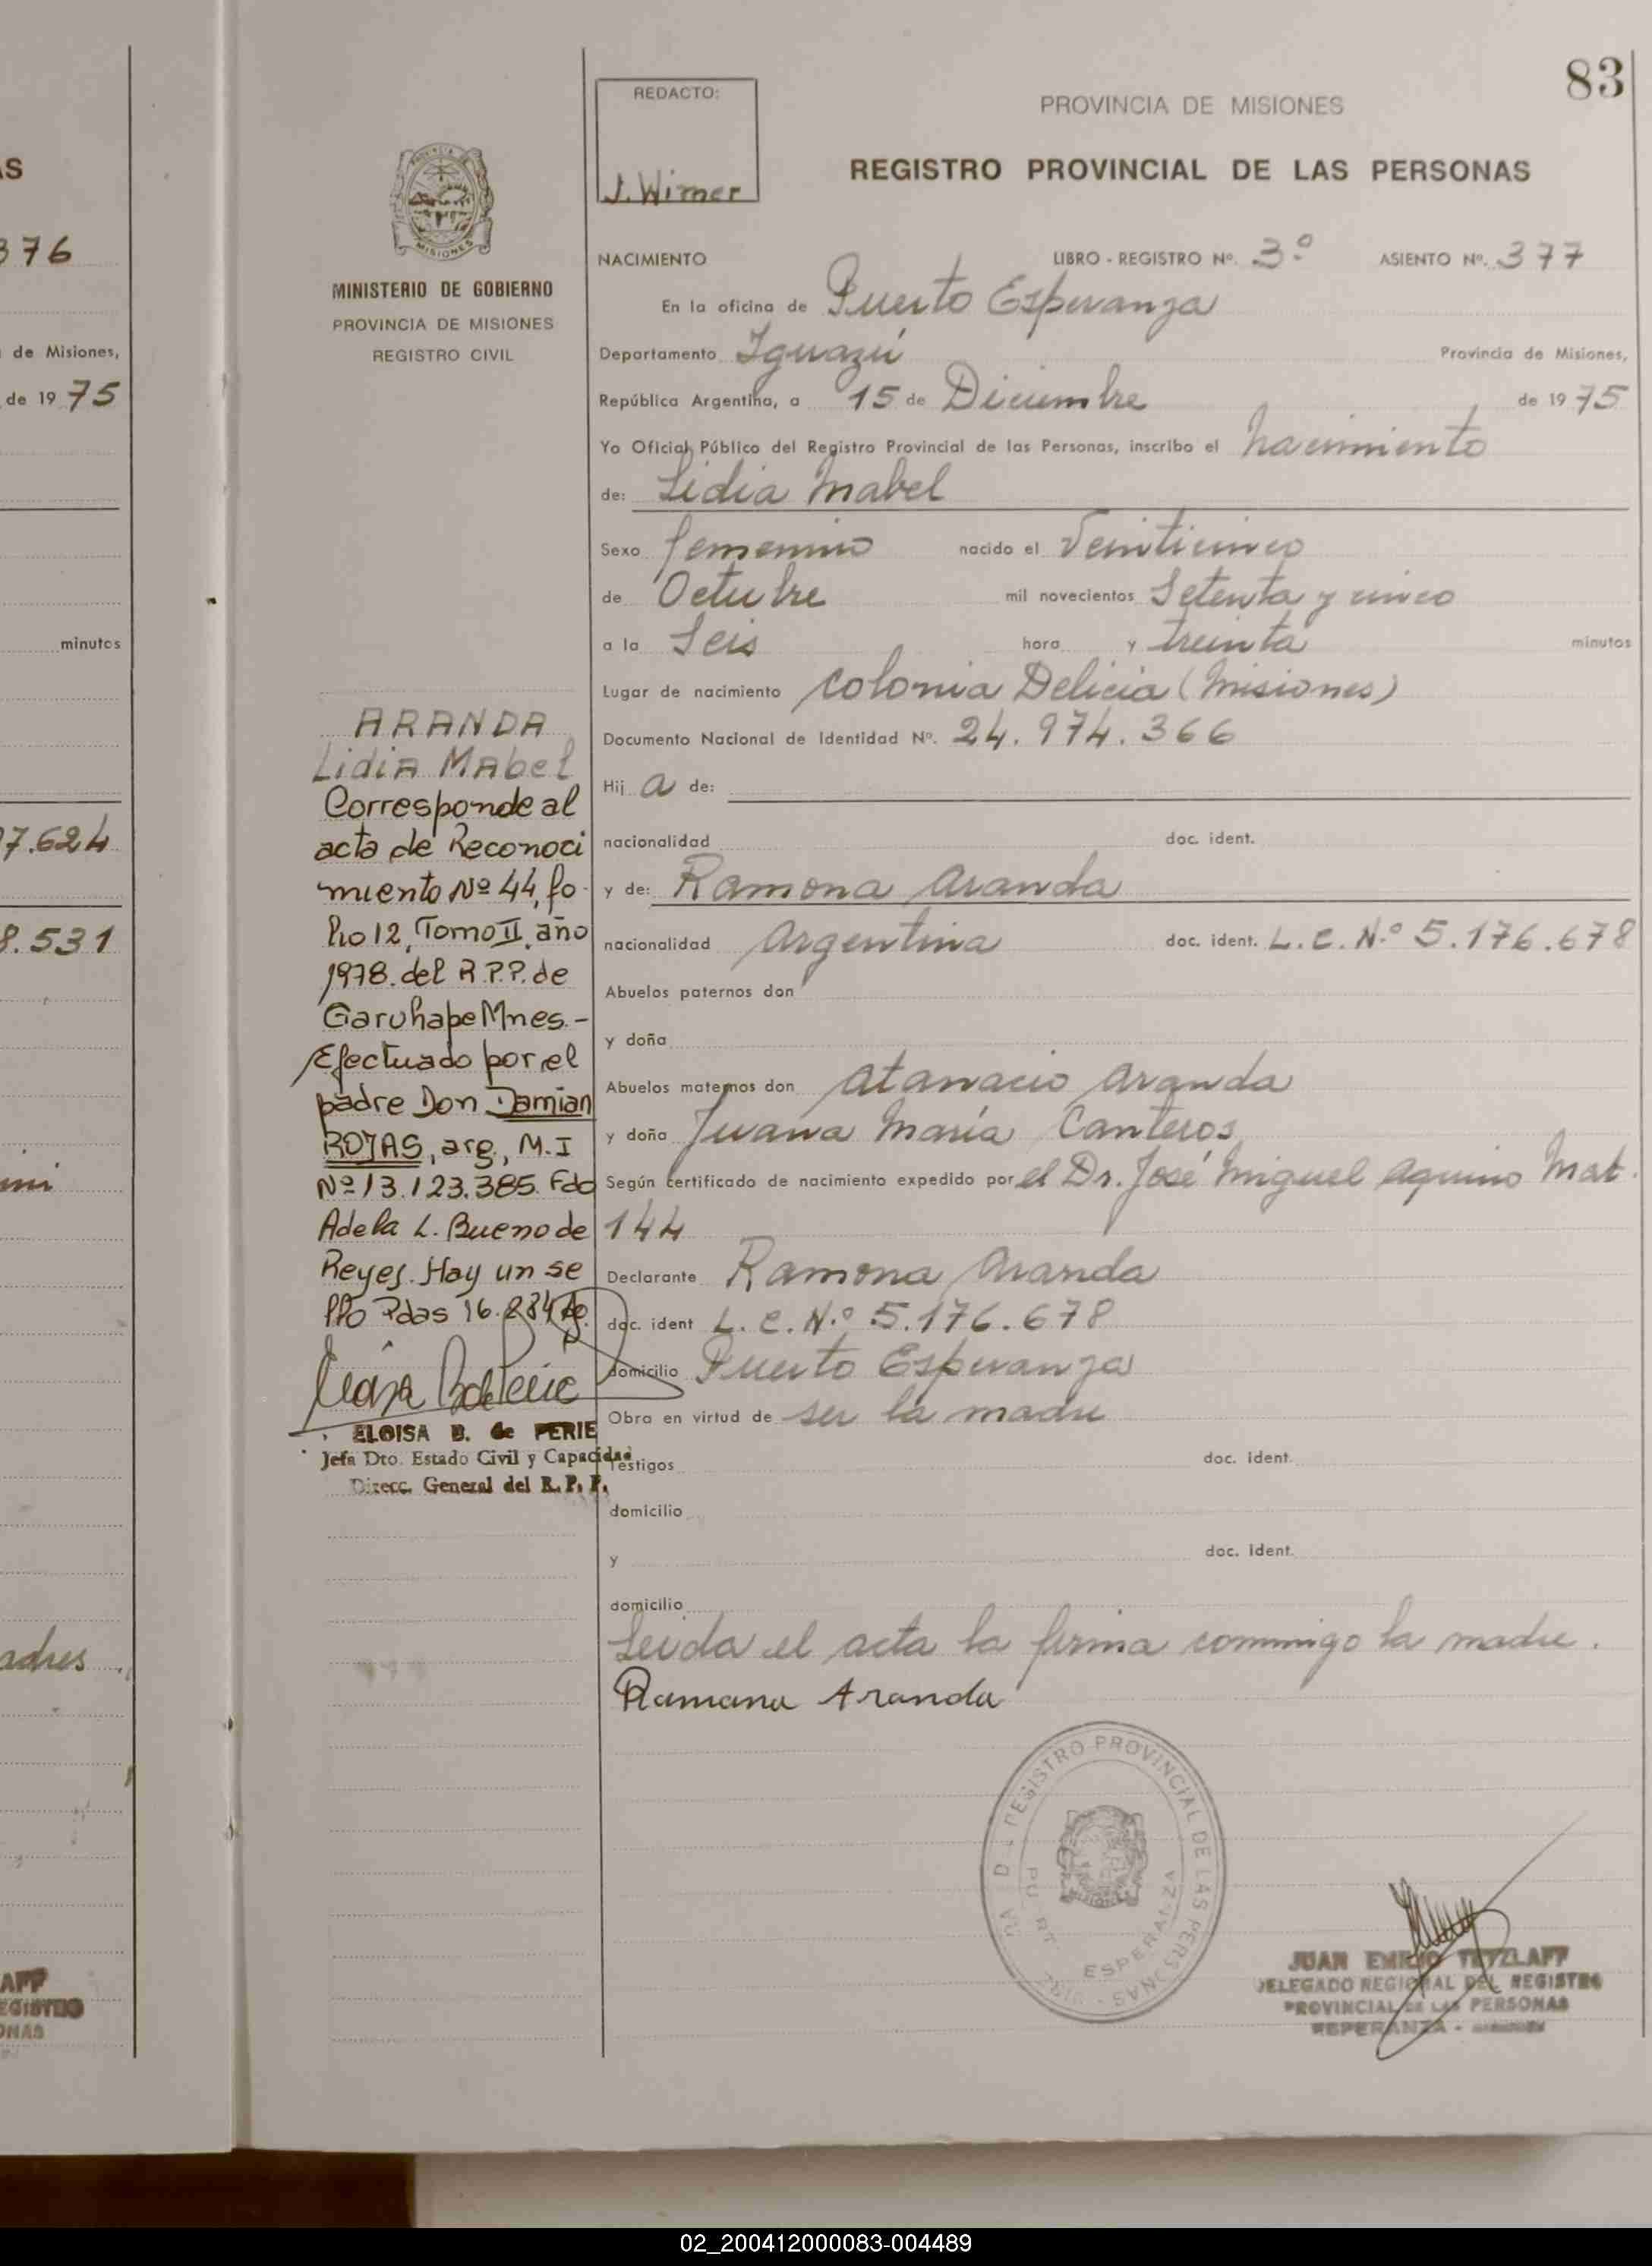 AS
376
de Misiones,
de 19 75
minutos
7.624
8.531
adres
APP
EGISTRO
ONAS
83
REDACTO:
J. Wimer
PROVINCIA DE MISIONES
REGISTRO PROVINCIAL DE LAS PERSONAS
MINISTERIO DE GOBIERNO
PROVINCIA DE MISIONES
REGISTRO CIVIL
ARANDA
Lidia Mabel
Corresponde al
acta de Reconoci
miento Nº 44, fo-
lio 12, Tomo II, año
1978. del R.P.P. de
Garuhape Mnes.-
Efectuado por el
padre Don Damian
ROJAS, arg., M.I
Nº 13.123.385. Fdo
Adela L. Bueno de
Reyes. Hay un se
llo Pdas 16.
ELOISA B. de PERIE
Jefa Dto. Estado Civil y Capacidad
Direcc. General del R. P. P.
NACIMIENTO LIBRO - REGISTRO Nº. 3º ASIENTO Nº. 377
En la oficina de Puerto Esperanza
Departamento Iguazú Provincia de Misiones,
República Argentina, a 15 de Diciembre de 19 75
Yo Oficial Público del Registro Provincial de las Personas, inscribo el nacimiento
de: Lidia Mabel
Sexo femenino nacido el Veinticinco
de Octubre mil novecientos Setenta y cinco
a la Seis hora y treinta minutos
Lugar de nacimiento Colonia Delicia (Misiones)
Documento Nacional de Identidad Nº. 24.974.366
Hij a de:
nacionalidad doc. ident.
y de: Ramona Aranda
nacionalidad Argentina doc. ident. L.C.N.º 5.176.678
Abuelos paternos don
y doña
Abuelos maternos don Atanacio Aranda
y doña Juana María Canteros
Según certificado de nacimiento expedido por el Dr. José Miguel Aquino Mat.
144
Declarante Ramona Aranda
doc. ident L.C.N.º 5.176.678
domicilio Puerto Esperanza
Obra en virtud de ser la madre
Testigos doc. ident.
domicilio
y doc. ident.
domicilio
Leida el acta la firma conmigo la madre.
Ramona Aranda
REGISTRO PROVINCIAL DE LAS PERSONAS
ESPERANZA
JUAN EMILIO TETZLAFF
DELEGADO REGIONAL DEL REGISTRO
PROVINCIAL DE LAS PERSONAS
ESPERANZA -
02_200412000083-004489